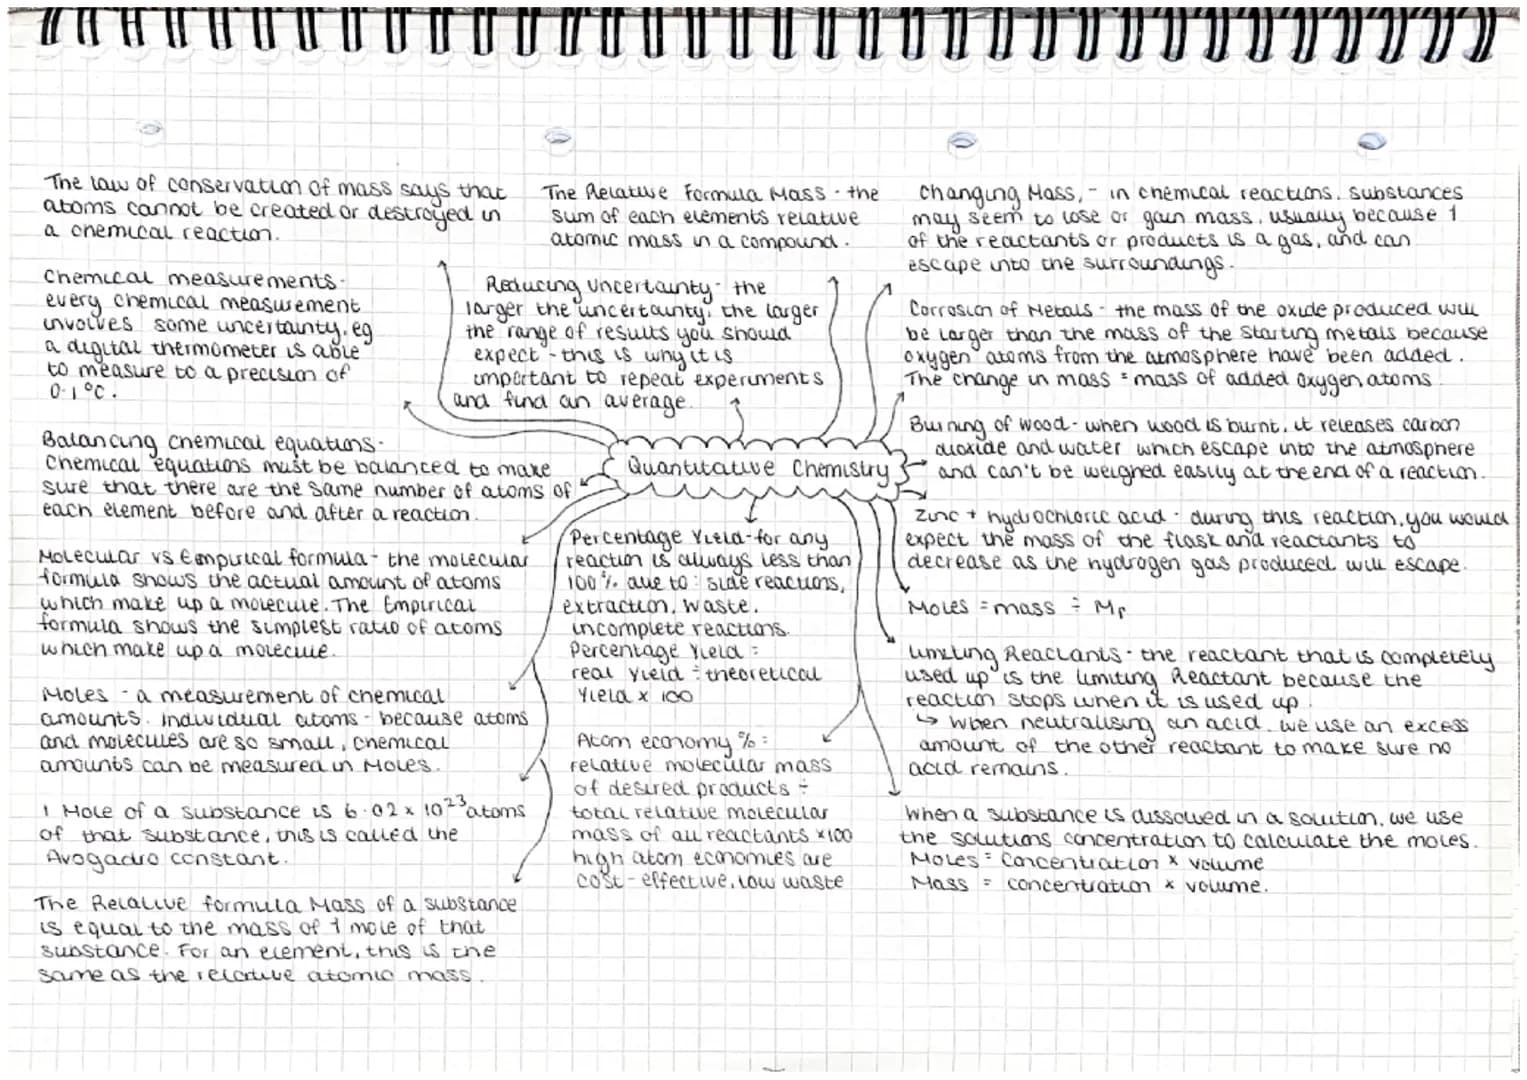 The law of conservation of mass says that
atoms cannot be created or destroyed in
a chemical reaction.
Chemical measurements-
every chemical measurement
involves some uncertainty, eg
a digital thermometer is able
to measure to a precision of
0.1°C.
Balancing chemical equations-
Chemical equations must be balanced to make
sure that there are the same number of atoms of
each element before and after a reaction.
Molecular vs Empirical formula - the molecular
formula shows the actual amount of atoms
which make up a molecule. The Empirical
formula shows the simplest ratio of atoms
which make up a molecule.
Moles - a measurement of chemical
amounts. individual atoms - because atoms
and molecules are so small, chemical
amounts can be measured in Moles.
1 Mole of a substance is 6.02 x 10²³ atoms
of that substance, this is called the
Avogadro constant.
The Relative formula Mass of a substance
is equal to the mass of 1 mole of that
substance. For an element, this is the
same as the relative atomic mass.
The Relative Formula Mass - the
sum of each elements relative
atomic mass in a compound.
Reducing Uncertainty - the
larger the uncertainty, the larger
the range of results you should
expect - this is why it is
important to repeat experiments
and find an average.
Quantitative Chemistry
Percentage Yield - for any
reaction is always less than
100% due to: side reactions,
extraction, waste,
incomplete reactions.
Percentage Yield =
real yield ÷ theoretical
Yield x 100
Atom economy % =
relative molecular mass
of desired products ÷
total relative molecular
mass of all reactants x100
high atom economies are
cost-effective, low waste
Changing Mass, - in chemical reactions, substances
may seem to lose or gain mass, usually because 1
of the reactants or products is a gas, and can
escape into the surroundings.
Corrosion of Metals - the mass of the oxide produced will
be larger than the mass of the starting metals because
oxygen atoms from the atmosphere have been added.
The change in mass = mass of added oxygen atoms.
Burning of wood - when wood is burnt, it releases carbon
dioxide and water which escape into the atmosphere
and can't be weighed easily at the end of a reaction.
Zinc + hydrochloric acid - during this reaction, you would
expect the mass of the flask and reactants to
decrease as the hydrogen gas produced will escape.
Moles = mass ÷ Mr
Limiting Reactants - the reactant that is completely
used up is the limiting Reactant because the
reaction stops when it is used up.
↳ When neutralising an acid, we use an excess
amount of the other reactant to make sure no
acid remains.
When a substance is dissolved in a solution, we use
the solutions concentration to calculate the moles.
Moles = Concentration x volume
Mass = concentration x volume.